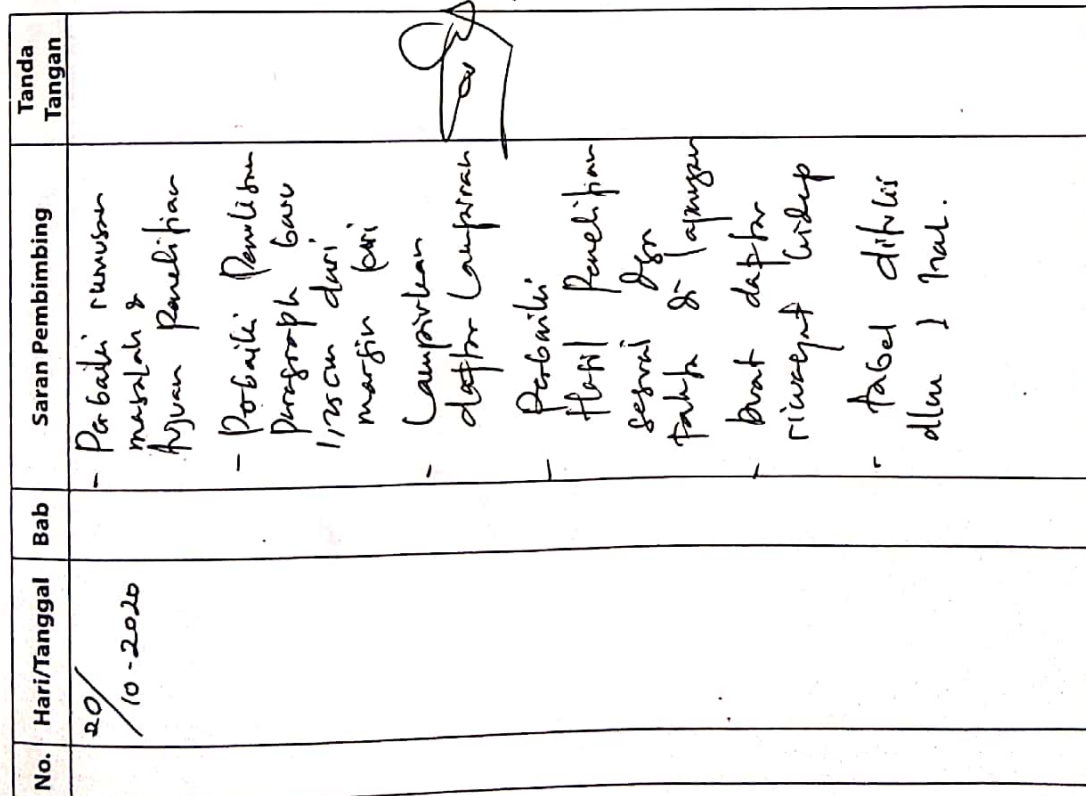 No. Hari/Tanggal Bab Saran Pembimbing Tanda Tangan
20/10-2020
- Perbaiki rumusan
masalah &
tujuan Penelitian
- Perbaiki Penulisan
Paragraph baru
1,25 cm dari
margin kiri
- Lampirkan
daftar Lampiran
- Perbaiki
Hasil Penelitian
sesuai dgn
fakta di lapangan
- buat daftar
riwayat hidup
- tabel ditulis
dlm 1 hal.